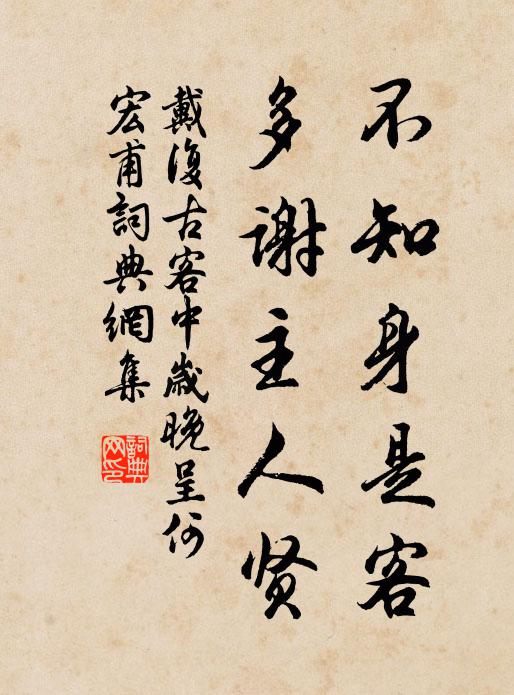 不知身是客
多谢主人贤
戴復古客中歲晚呈何
宏甫詞典網集
詞典
网印